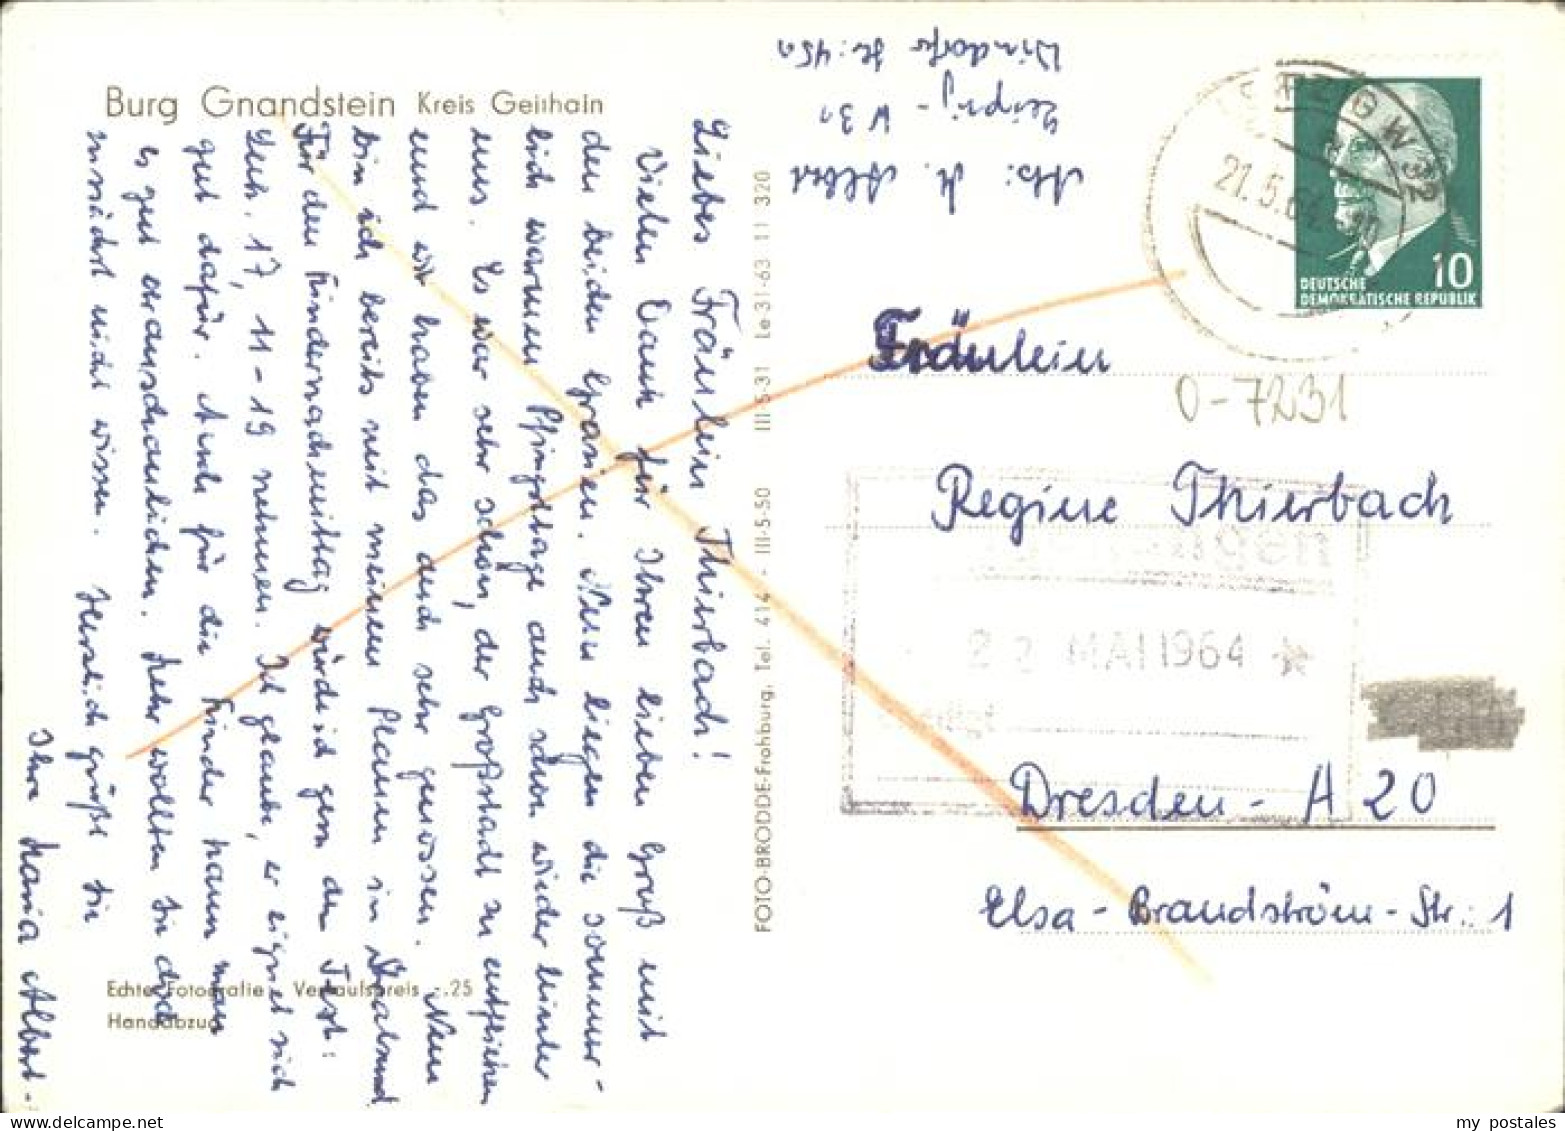 Burg Gnandstein Kreis Geithain
Liebes Fräulein Thierbach!
Vielen Dank für Ihren lieben Gruß mit
den beiden Grazien. Nun liegen die sommer-
lich warmen Pfingsttage auch schon wieder hinter
uns. Es war sehr schön, der Großstadt zu entfliehen
und wir haben das auch sehr genossen. Nun
bin ich bereits mit meinem Planen im
Für den Kindernachmittag würde ich gern den Text:
Luk. 17, 11-19 nehmen. Ich glaube, er eignet sich
gut dafür. Auch für die Kinder kann man
es gut veranschaulichen. Mehr wollten Sie doch
zunächst nicht wissen. Herzlich grüßt Sie
Ihre Maria Albert.
Echte Fotografie Verkaufspreis -.25
Handabzug
FOTO-BRODDE-Frohburg, Tel. 414 - III-5-50 III-5-31 Le 31-63 11 320
Abs: M. Albert
Leipzig - W 31
Windorfer Str: 45a
LEIPZIG W 32
21.5.64
DEUTSCHE
DEMOKRATISCHE REPUBLIK
10
Fräulein
0-7231
Regine Thierbach
22 MAI 1964
Dresden - A 20
Elsa-Brandström-Str.: 1
my postales